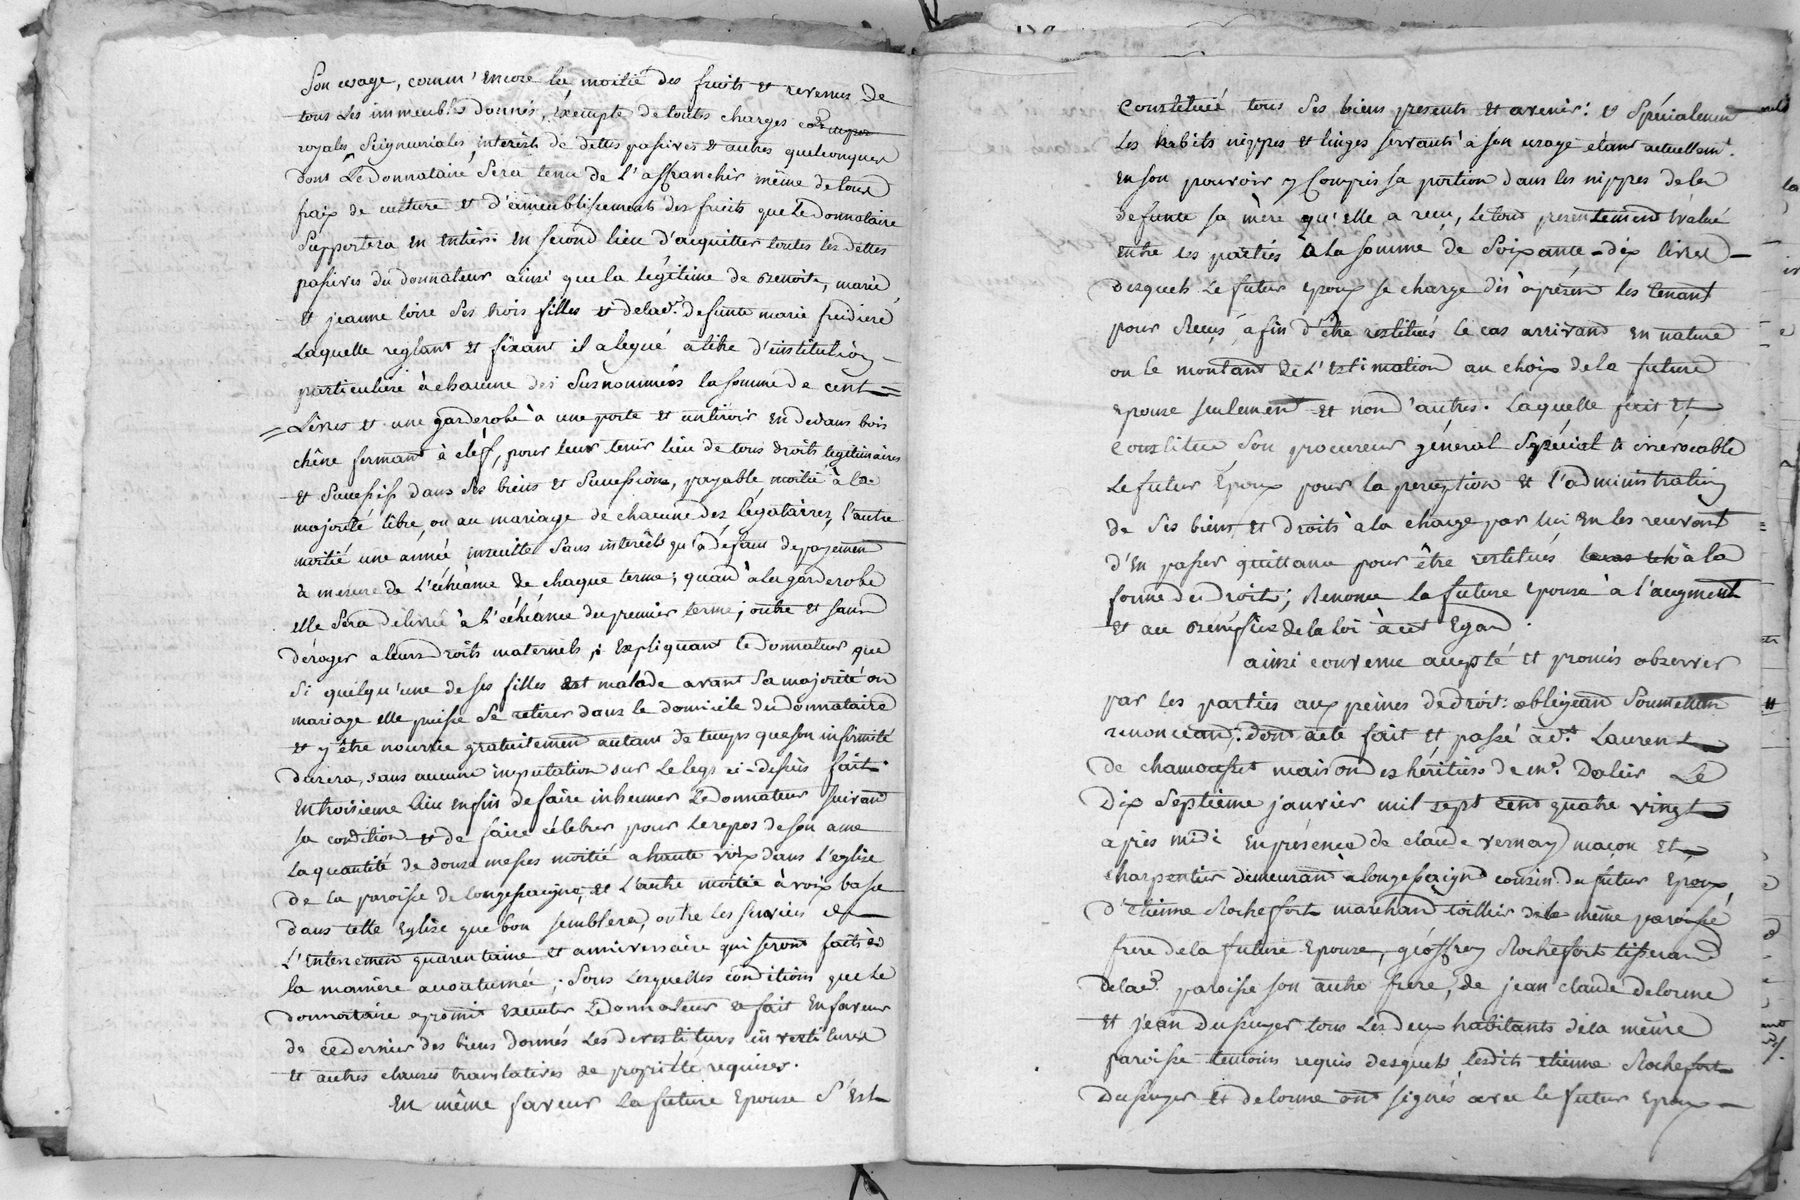 Son usage, comm' encore la moitié des fruits et revenus de
tous les immeubles donnés, exempte de toutes charges
royales Seigneuriales, interêts de dettes passives & autres quelconques
dont le donnataire sera tenu de l'affranchir même de tous
fraix de culture et d'ameublissements des fruits que le donnataire
supportera en entier. en second lieu d'acquitter toutes les dettes
passives du donnateur ainsi que la légitime de Benoite, marie,
et jeanne loire ses trois filles et de lad.e defunte marie freidiere
laquelle reglant et fixant il a legué a titre d'institution
particuliere à chacune des susnommées la somme de cent
Livres et une garderobe à une porte et un tiroir en dedans bois
chêne fermant à cléf, pour leur tenir lieu de tous droits légitimaires
et successifs dans ses biens et successions, payable moitié à la
majorité libre, ou au mariage de chacune des légatairez, l'autre
moitié une année ensuitte sans interêts qu'à défaut de payement
à mesure de l'échéance de chaque terme; quand à la garderobe
elle sera délivrée à l'échéance du premier terme; outre et sans
déroger a leurs droits maternels, Expliquant le donnateur que
si quelqu'une de ses filles est malade avant sa majorité ou
mariage elle puisse se retirer dans le domicile du donnataire
et y être nourrie gratuitement autant de temps que son infirmité
durera, sans aucune imputation sur le legs ci-dessus fait.
En troisieme lieu enfin de faire inhumer le donnateur suivant
sa condition et de faire célebrer pour le repos de son ame
la quantité de douze messes moitié a haute voix dans l'eglise
de la paroisse de longessaigne, et l'autre moitié à voix basse
dans telle Eglise que bon semblera, outre les services de
l'enterrement quarentaine et anniversaire qui seront faits à
la maniére acoutumée; Sous lesquelles conditions que le
donnataire a promit executer le donnateur a fait en faveur
de ce dernier des biens donnés les devestitures investitures
et autres clauses translatives de propriété requises.
En même faveur la future Epouse s'est
Constitué tous ses biens presents et avenir: & spécialement
les habits nippes et linges servants à son usage étant actuellemt.
en son pouvoir y compris sa portion dans les nippes de la
defunte sa mère qu'elle a reçu, le tout presentement évalué
entre les parties à la somme de soixante-dix livres
desquels le futur epoux se charge dès à présent les tenant
pour reçus, afin d'être restitués le cas arrivant en nature
ou le montant de l'estimation au choix de la future
epouse seulement et non d'autres. laquelle fait et
constitue son procureur général spécial & irrevocable
le futur Epoux pour la perception & l'administration
de ses biens et droits à la charge par lui en les recevant
d'en passer quittance pour être restitués à la
forme du droit; Renonce la future epouse à l'augment
et au bénéfice de la loi à cet Egard.
ainsi convenu accepté et promis observer
par les parties aux peines de droit: obligeant soumettant
renonceant; dont acte fait et passé à St. Laurent
de chamousset maison des héritiers de me. Daleir Le
dix septieme janvier mil sept cent quatre vingt
après midi en présence de claude vernay maçon et
charpentier demeurant à longessaigne cousin du futur Epoux,
d'Etienne Rochefort marchand toillier de la même paroisse
frere de la future Epouse, géoffrey Rochefort tisserand
de lad.e paroisse son autre frere, de jean claude delorme
et jean Dupuyer tous les deux habitants de la même
paroisse temoins requis desquels lesdits etienne Rochefort
Dupuyer et delorme ont signés avec le futur Epoux